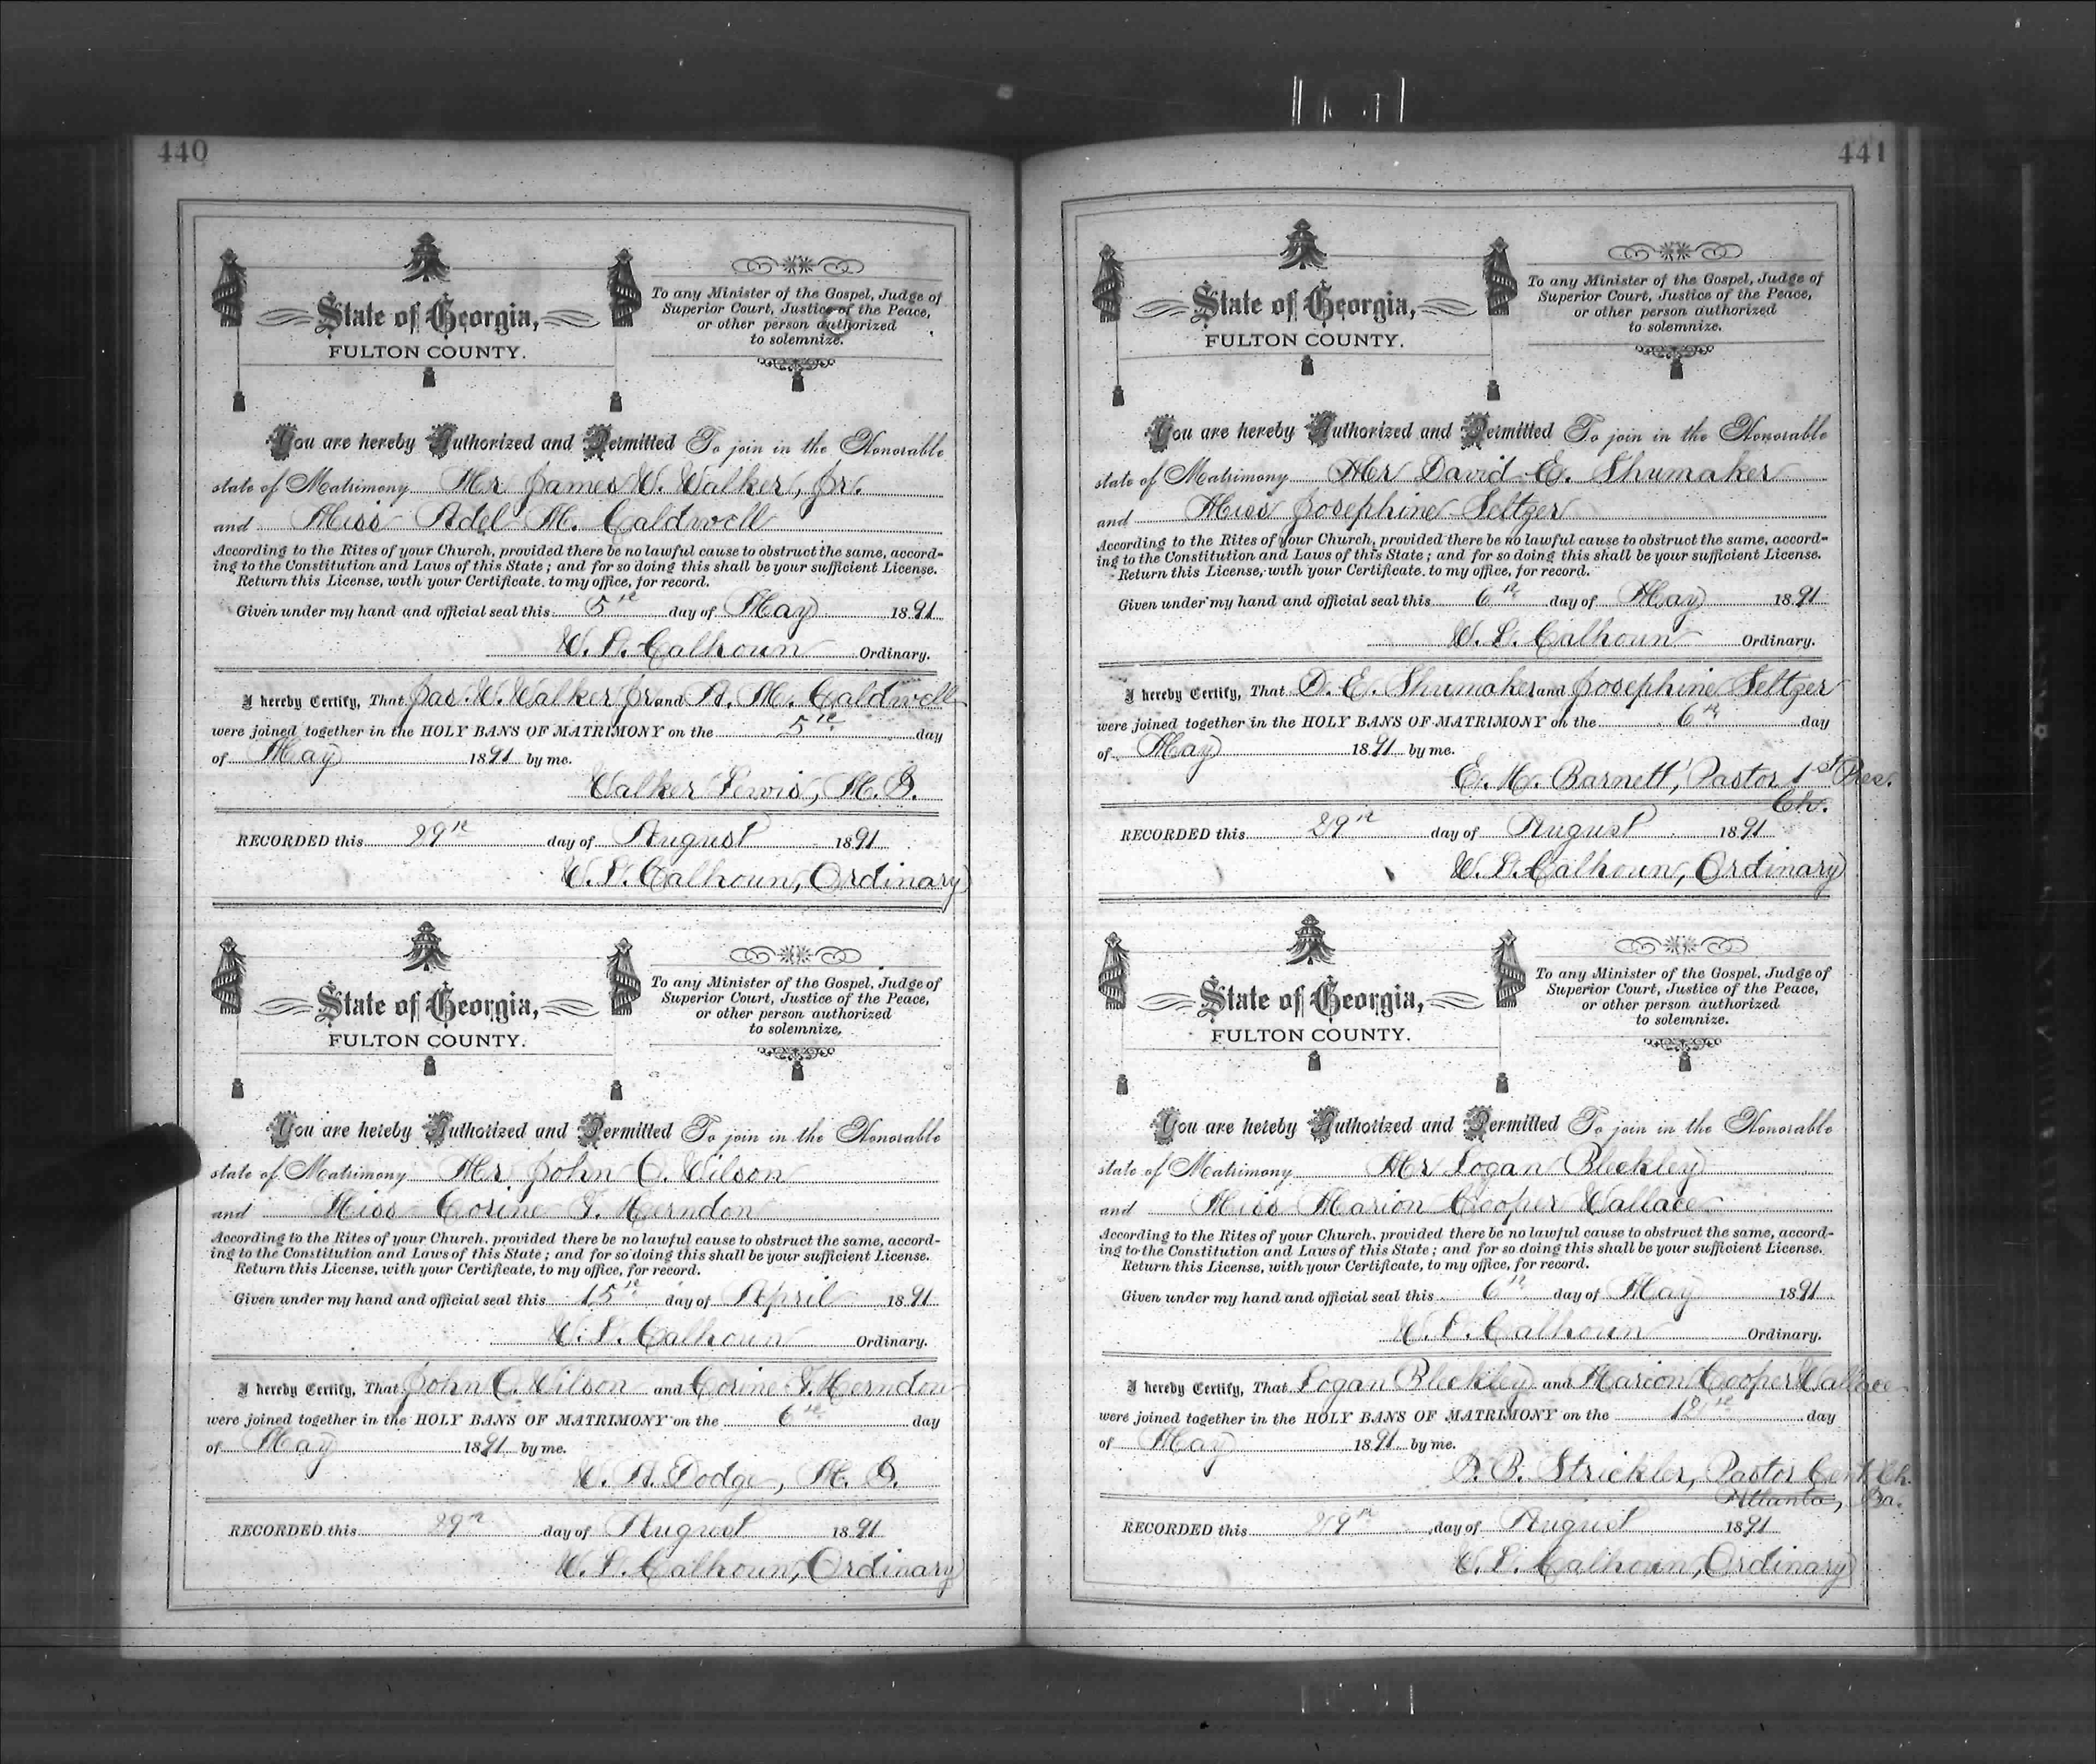 440
State of Georgia,
FULTON COUNTY.
To any Minister of the Gospel, Judge of
Superior Court, Justice of the Peace,
or other person authorized
to solemnize.
You are hereby Authorized and Permitted To join in the Honorable
state of Matrimony Mr James W. Walker, Jr.
and Miss Adel M. Caldwell
According to the Rites of your Church, provided there be no lawful cause to obstruct the same, accord-
ing to the Constitution and Laws of this State; and for so doing this shall be your sufficient License.
Return this License, with your Certificate, to my office, for record.
Given under my hand and official seal this 5th day of May 1891
W. L. Calhoun Ordinary.
I hereby Certify, That Jas. W. Walker Jr and A. M. Caldwell
were joined together in the HOLY BANS OF MATRIMONY on the 5th day
of May 1891 by me.
Walker Lewis, M. G.
RECORDED this 29th day of August 1891
W. L. Calhoun, Ordinary
State of Georgia,
FULTON COUNTY.
To any Minister of the Gospel, Judge of
Superior Court, Justice of the Peace,
or other person authorized
to solemnize,
You are hereby Authorized and Permitted To join in the Honorable
state of Matrimony Mr John C. Wilson
and Miss Corine J. Herndon
According to the Rites of your Church, provided there be no lawful cause to obstruct the same, accord-
ing to the Constitution and Laws of this State; and for so doing this shall be your sufficient License.
Return this License, with your Certificate, to my office, for record.
Given under my hand and official seal this 15th day of April 1891
W. L. Calhoun Ordinary.
I hereby Certify, That John C. Wilson and Corine J. Herndon
were joined together in the HOLY BANS OF MATRIMONY on the 6th day
of May 1891 by me.
W. A. Dodge, M. G.
RECORDED this 29th day of August 1891
W. L. Calhoun, Ordinary
441
State of Georgia,
FULTON COUNTY.
To any Minister of the Gospel, Judge of
Superior Court, Justice of the Peace,
or other person authorized
to solemnize.
You are hereby Authorized and Permitted To join in the Honorable
state of Matrimony Mr David E. Shumaker
and Miss Josephine Seltzer
According to the Rites of your Church, provided there be no lawful cause to obstruct the same, accord-
ing to the Constitution and Laws of this State; and for so doing this shall be your sufficient License.
Return this License, with your Certificate, to my office, for record.
Given under my hand and official seal this 6th day of May 1891
W. L. Calhoun Ordinary.
I hereby Certify, That D. E. Shumaker and Josephine Seltzer
were joined together in the HOLY BANS OF MATRIMONY on the 6th day
of May 1891 by me.
E. H. Barnett, Pastor 1st Pres.
Ch.
RECORDED this 29th day of August 1891
W. L. Calhoun, Ordinary
State of Georgia,
FULTON COUNTY.
To any Minister of the Gospel, Judge of
Superior Court, Justice of the Peace,
or other person authorized
to solemnize.
You are hereby Authorized and Permitted To join in the Honorable
state of Matrimony Mr Logan Bleckley
and Miss Marion Cooper Wallace
According to the Rites of your Church, provided there be no lawful cause to obstruct the same, accord-
ing to the Constitution and Laws of this State; and for so doing this shall be your sufficient License.
Return this License, with your Certificate, to my office, for record.
Given under my hand and official seal this 6th day of May 1891
W. L. Calhoun Ordinary.
I hereby Certify, That Logan Bleckley and Marion Cooper Wallace
were joined together in the HOLY BANS OF MATRIMONY on the 12th day
of May 1891 by me.
G. B. Strickler, Pastor Cent. Ch.
Atlanta, Ga.
RECORDED this 29th day of August 1891
W. L. Calhoun, Ordinary